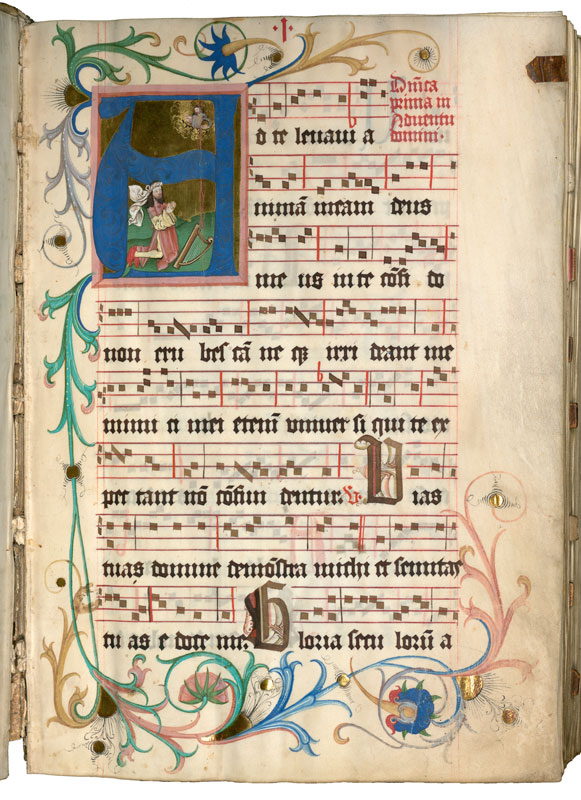 I
Dn̄ica
prima in
Aduentu
domini.
A d te leuaui a
nimā meam deus
me us in te cōfi do
non eru bes cā ne qꝫ irri deant me
inimi ci mei etenī vniuer si qui te ex
pec tant nō cōfun dentur. ℣ Vias
tuas domine demōstra michi et semitas
tu as e doce me. Gloria secu lorū a